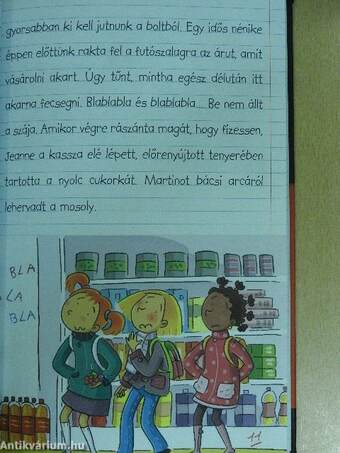 gyorsabban ki kell jutnunk a boltból. Egy idős nénike
éppen előttünk rakta fel a futószalagra az árut, amit
vásárolni akart. Úgy tűnt, mintha egész délután itt
akarna fecsegni. Blablabla és blablabla... Be nem állt
a szája. Amikor végre rászánta magát, hogy fizessen,
Jeanne a kassza elé lépett, előrenyújtott tenyerében
tartotta a nyolc cukorkát. Martinot bácsi arcáról
lehervadt a mosoly.
BLA
LA
BLA
11
Antikvárium.hu